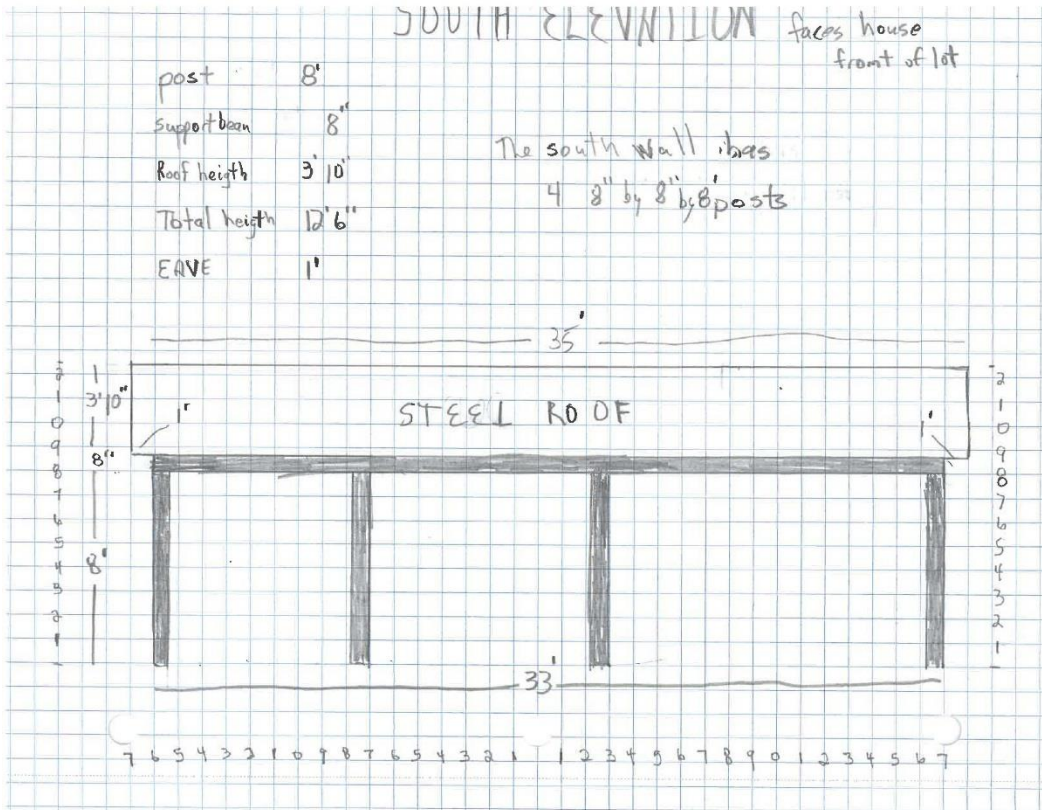 SOUTH ELEVATION faces house
front of lot
post 8'
support bean 8"
Roof heigth 3' 10"
Total heigth 12' 6"
EAVE 1'
The south wall has
4 8" by 8" by 8' posts
35'
3' 10"
1'
STEEL ROOF
1'
8"
8'
2
1
0
9
8
7
6
5
4
3
2
1
2
1
0
9
8
7
6
5
4
3
2
1
33'
7 6 5 4 3 2 1 0 9 8 7 6 5 4 3 2 1 1 2 3 4 5 6 7 8 9 0 1 2 3 4 5 6 7